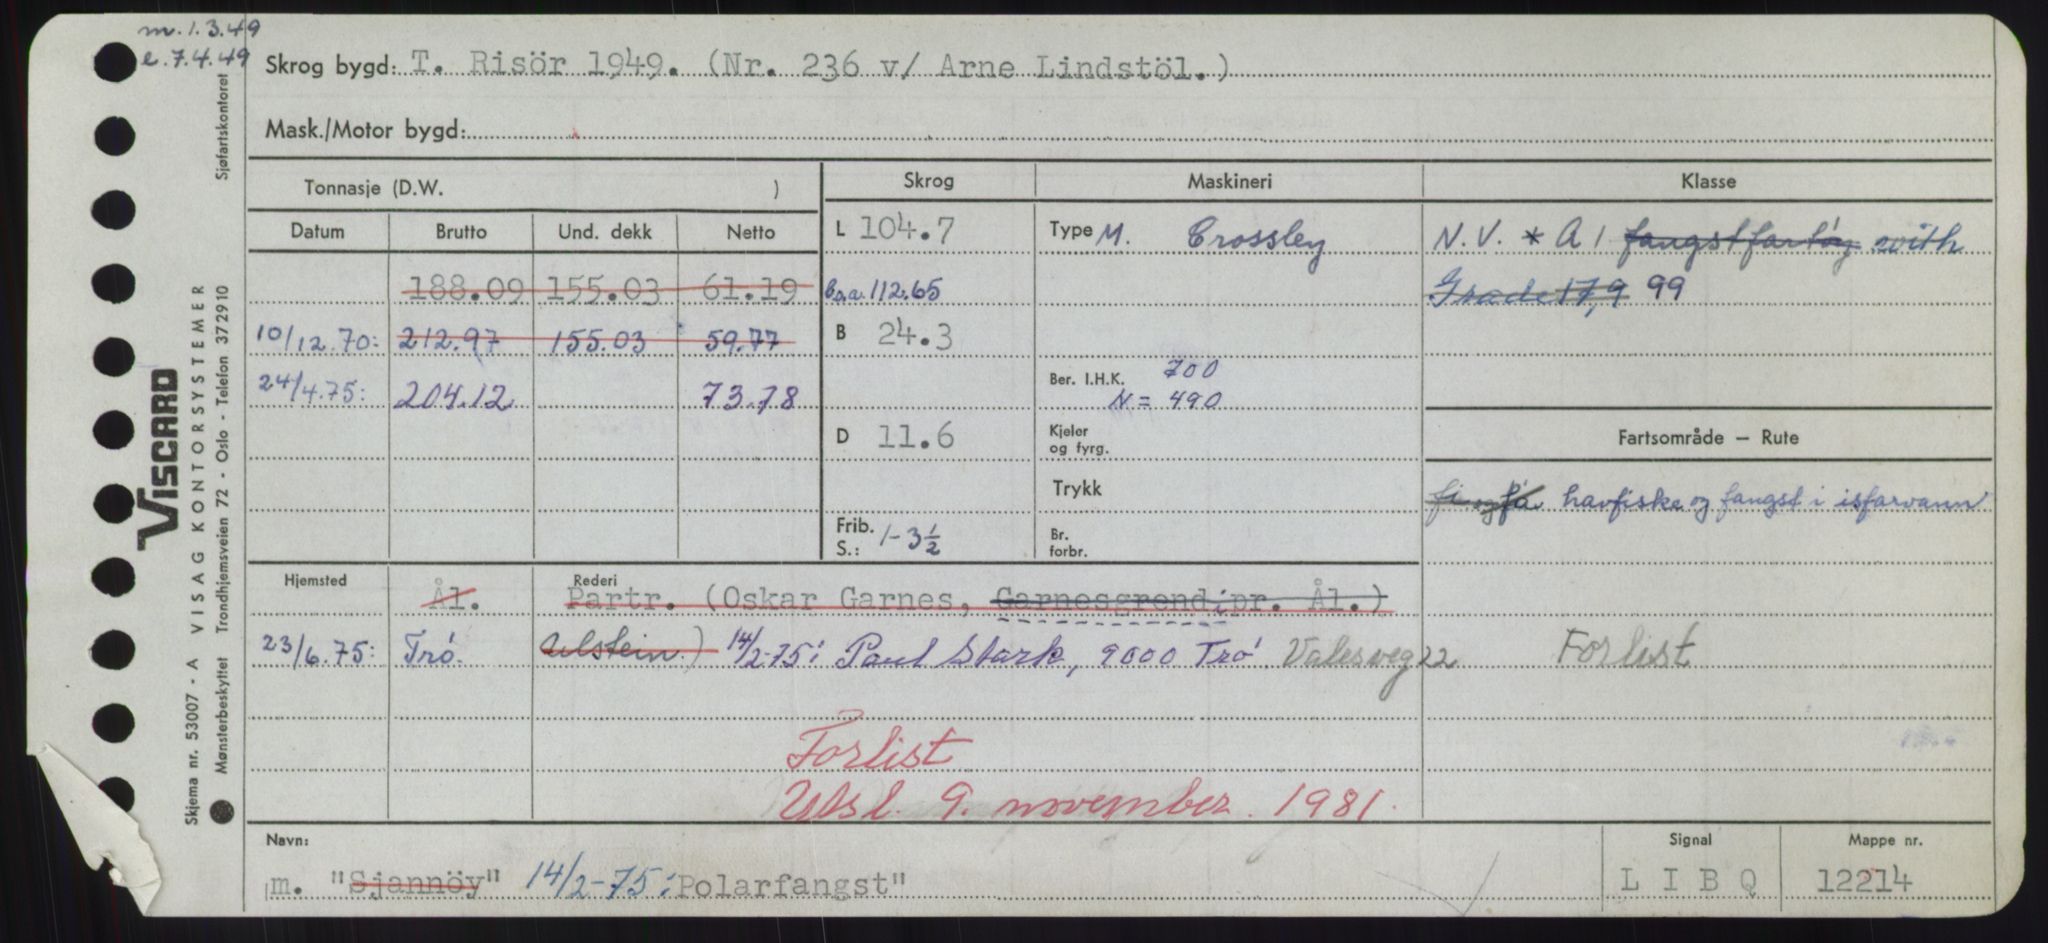 m. 1.3.49
e. 7.4.49
Skrog bygd: T. Risör 1949. (Nr. 236 v/ Arne Lindstöl.)
Mask./Motor bygd:
Tonnasje (D.W. )
Skrog
Maskineri
Klasse
Datum Brutto Und. dekk Netto
188.09 155.03 61.19
10/12.70: 212.97 155.03 59.77
24/4.75: 204.12 73.78
L 104.7
l.o.a. 112.65
B 24.3
D 11.6
Frib. S.: 1-3½
Type M. Crossley
Ber. I.H.K. 700
N = 490
Kjeler og fyrg.
Trykk
Br. forbr.
N.V. * A 1 fangstfartöy with
Grade 17,9 99
Fartsområde — Rute
fi og få havfiske og fangst i isfarvann
Forlist
Hjemsted
Ål.
Rederi
Partr. (Oskar Garnes, Garnesgrend i pr. Ål.)
23/6.75: Trö. Ulstein) 14/2-75: Paul Stark, 9000 Trö Valesveg 22
Forlist
Utsl. 9. november. 1981.
Navn:
m. "Sjannöy" 14/2-75: Polarfangst"
Signal
L I B Q
Mappe nr.
12214
VISCARD
Skjema nr. 53007 - A VISAG KONTORSYSTEMER
Mønsterbeskyttet Trondhjemsveien 72 - Oslo - Telefon 372910
Sjøfartskontoret